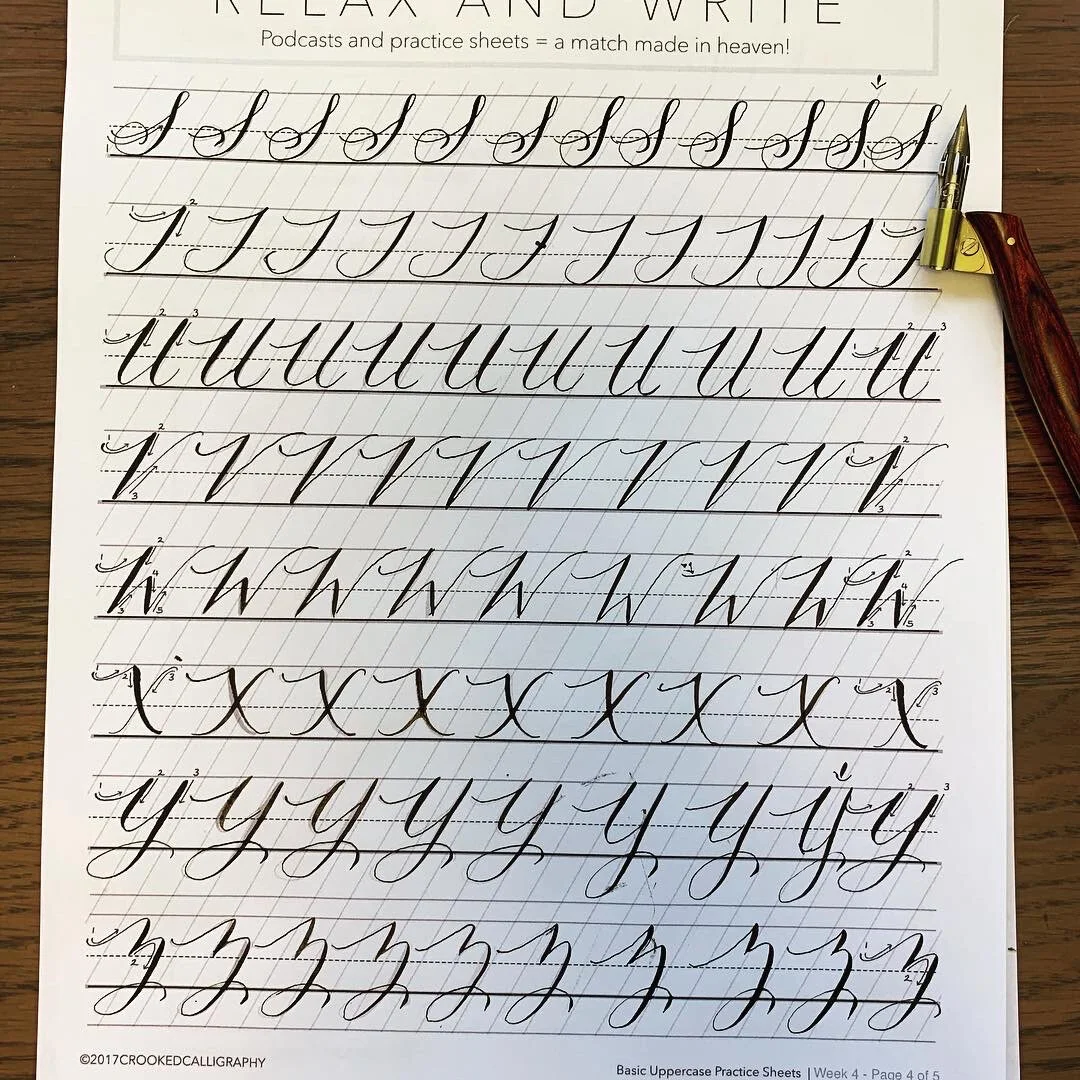 RELAX AND WRITE
Podcasts and practice sheets = a match made in heaven!
S S S S S S S S S S S S
T T T T T T T T T T T T
U U U U U U U U U U
V V V V V V V V V V
W W W W W W W W W
X X X X X X X X X
Y Y Y Y Y Y Y Y Y
Z Z Z Z Z Z Z Z Z Z
©2017CROOKEDCALLIGRAPHY
Basic Uppercase Practice Sheets | Week 4 - Page 4 of 5